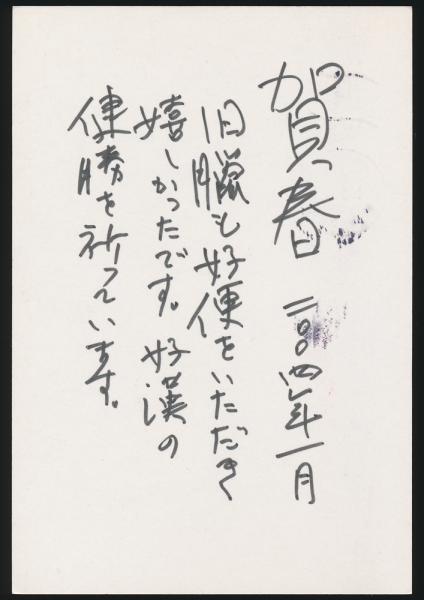 賀春 二〇〇四年一月
旧臘も好便をいただき
嬉しかったです。好漢の
健勝を祈っています。